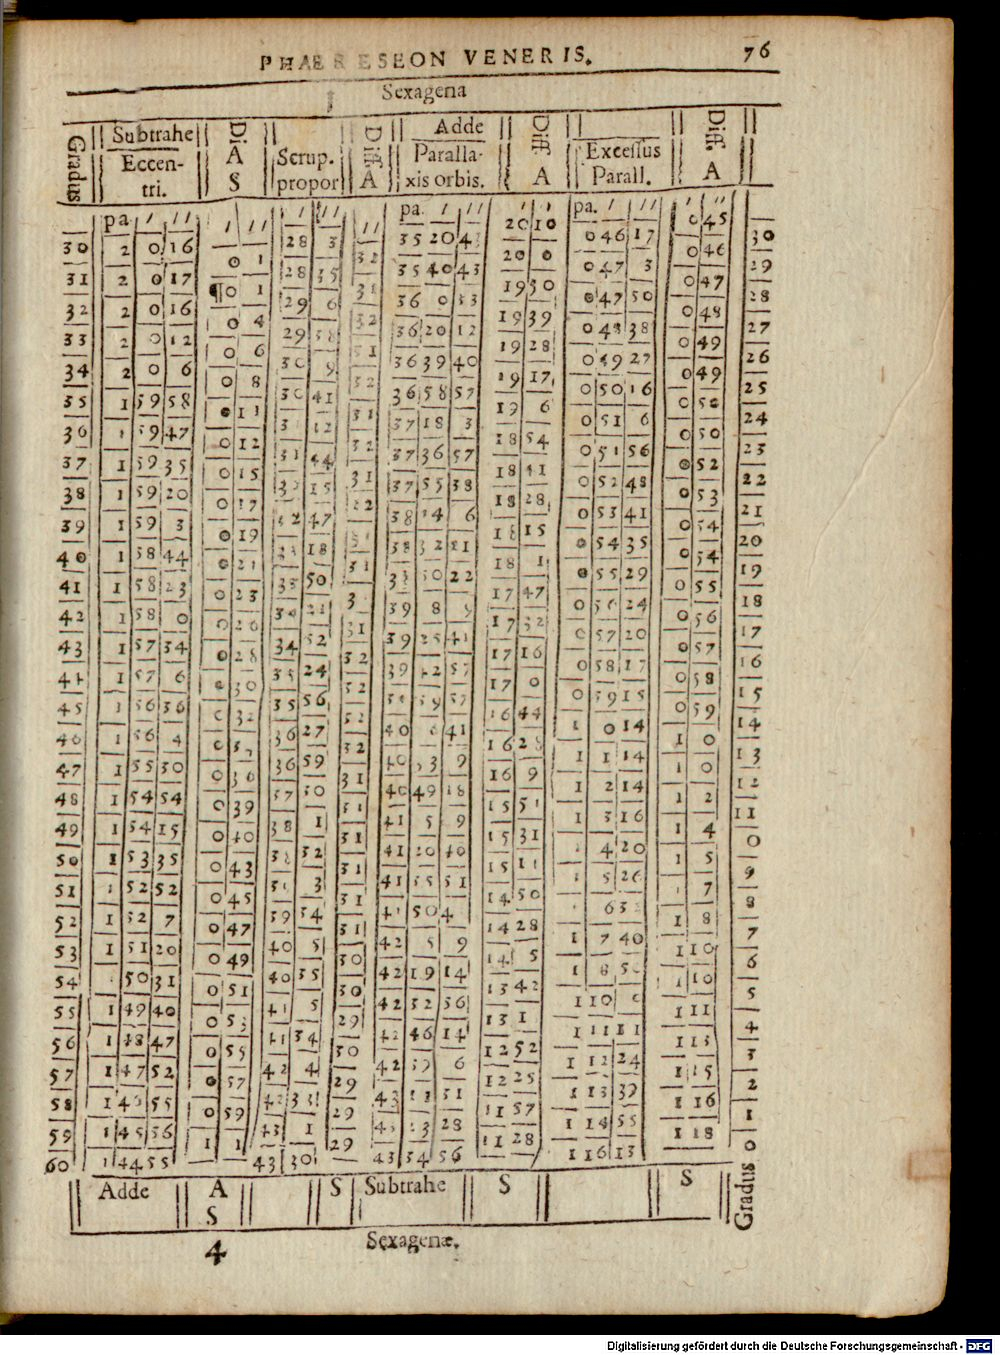 PHAERESEON VENERIS. 76
Sexagena
Gradus Subtrahe Diff. Adde Diff. Excessus Diff.
Eccentri. A S Scrup. propor A Parallaxis orbis. A Parall. A
pa. ' '' ' '' ' '' '' pa. ' '' ' '' pa. ' '' ' ''
30 2 0 16 0 1 28 3 32 35 20 43 20 10 0 46 17 0 45 30
31 2 0 17 0 1 28 35 31 35 40 43 20 0 0 47 3 0 46 29
32 2 0 16 0 4 29 6 32 36 0 33 19 50 0 47 50 0 47 28
33 2 0 12 0 6 29 38 31 36 20 12 19 39 0 48 38 0 48 27
34 2 0 6 0 8 30 9 32 36 39 40 19 28 0 49 27 0 49 26
35 1 59 58 0 11 30 41 31 36 58 57 19 17 0 50 16 0 49 25
36 1 59 47 0 12 31 12 32 37 18 3 19 6 0 51 6 0 50 24
37 1 59 35 0 15 31 44 31 37 36 57 18 54 0 51 56 0 50 23
38 1 59 20 0 17 32 15 32 37 55 38 18 41 0 52 48 0 52 22
39 1 59 3 0 19 32 47 31 38 14 6 18 28 0 53 41 0 53 21
40 1 58 44 0 21 33 18 31 38 32 21 18 15 0 54 35 0 54 20
41 1 58 23 0 23 33 50 38 50 22 18 1 0 55 29 0 54 19
42 1 58 0 0 26 34 21 31 39 8 9 17 47 0 56 24 0 55 18
43 1 57 34 0 28 34 52 32 39 25 41 17 32 0 57 20 0 56 17
44 1 57 6 0 30 35 24 32 39 42 57 17 16 0 58 17 0 57 16
45 1 56 36 0 32 35 56 32 59 57 17 0 0 59 15 0 58 15
46 1 56 4 36 27 32 40 41 16 44 1 0 14 0 59 14
47 1 55 30 0 36 36 59 31 40 33 9 16 28 1 1 14 1 0 13
48 1 54 54 0 39 37 30 31 40 49 18 16 9 1 2 14 1 0 12
49 1 54 15 0 40 38 1 31 41 5 9 15 51 1 3 16 1 2 11
50 1 53 35 0 43 38 32 31 41 20 40 15 31 4 20 1 4 0
51 1 52 52 0 45 3 31 41 35 51 15 11 5 26 1 5 9
52 1 52 7 0 47 39 34 31 41 50 14 50 6 7 8
53 1 51 20 0 49 40 5 30 42 5 9 14 28 1 7 40 1 8 7
54 50 31 0 51 40 35 30 42 19 14 14 5 1 8 50 1 10 6
55 1 49 40 0 53 41 5 29 42 32 56 13 42 1 10 0 1 10 5
56 1 48 47 0 55 41 34 30 42 46 14 13 1 1 11 11 1 11 4
57 1 47 52 0 57 42 4 29 42 59 6 12 52 1 12 24 1 13 3
58 1 46 55 0 59 42 33 29 43 11 31 12 25 1 13 39 1 15 2
59 1 45 56 1 1 43 1 29 43 23 28 11 57 1 14 55 1 16 1
60 1 44 55 43 30 43 34 56 11 28 1 16 13 1 18 0
Adde A S S Subtrahe S S Gradus
Sexagenæ.
4
Digitalisierung gefördert durch die Deutsche Forschungsgemeinschaft - DFG